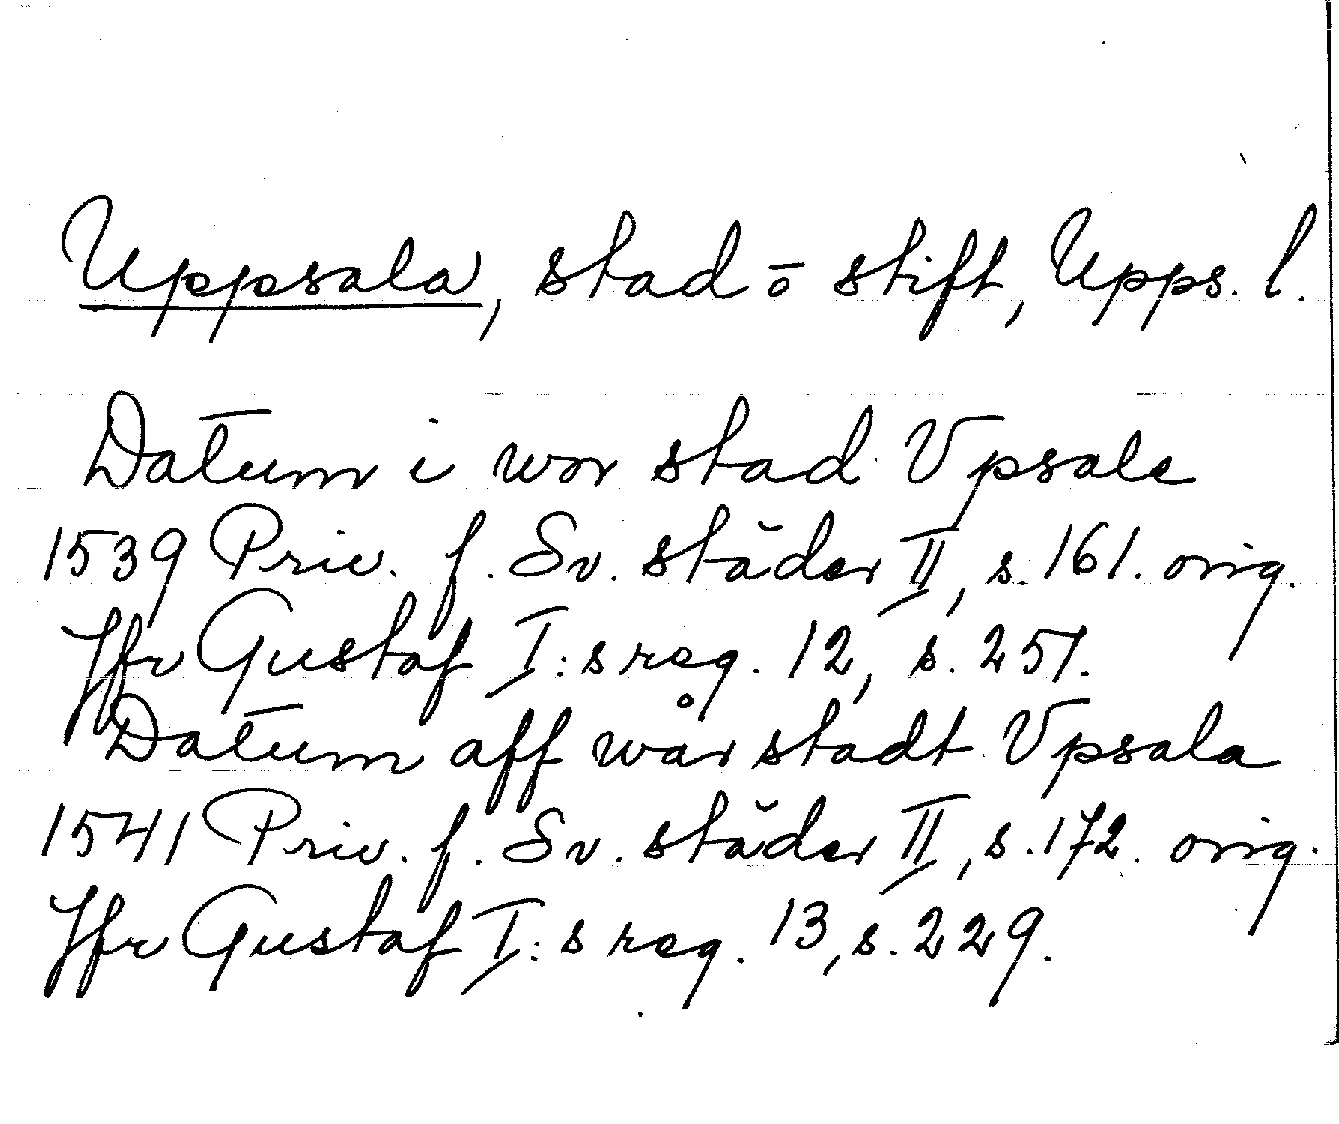 Uppsala, stad o stift, Upps. l.
Datum i wor stad Vpsale
1539 Priv. f. Sv. städer II, s. 161. orig.
Jfr Gustaf I:s reg. 12, s. 257.
Datum aff wår stadt Vpsala
1541 Priv. f. Sv. städer II, s. 172. orig.
Jfr Gustaf I:s reg. 13, s. 229.